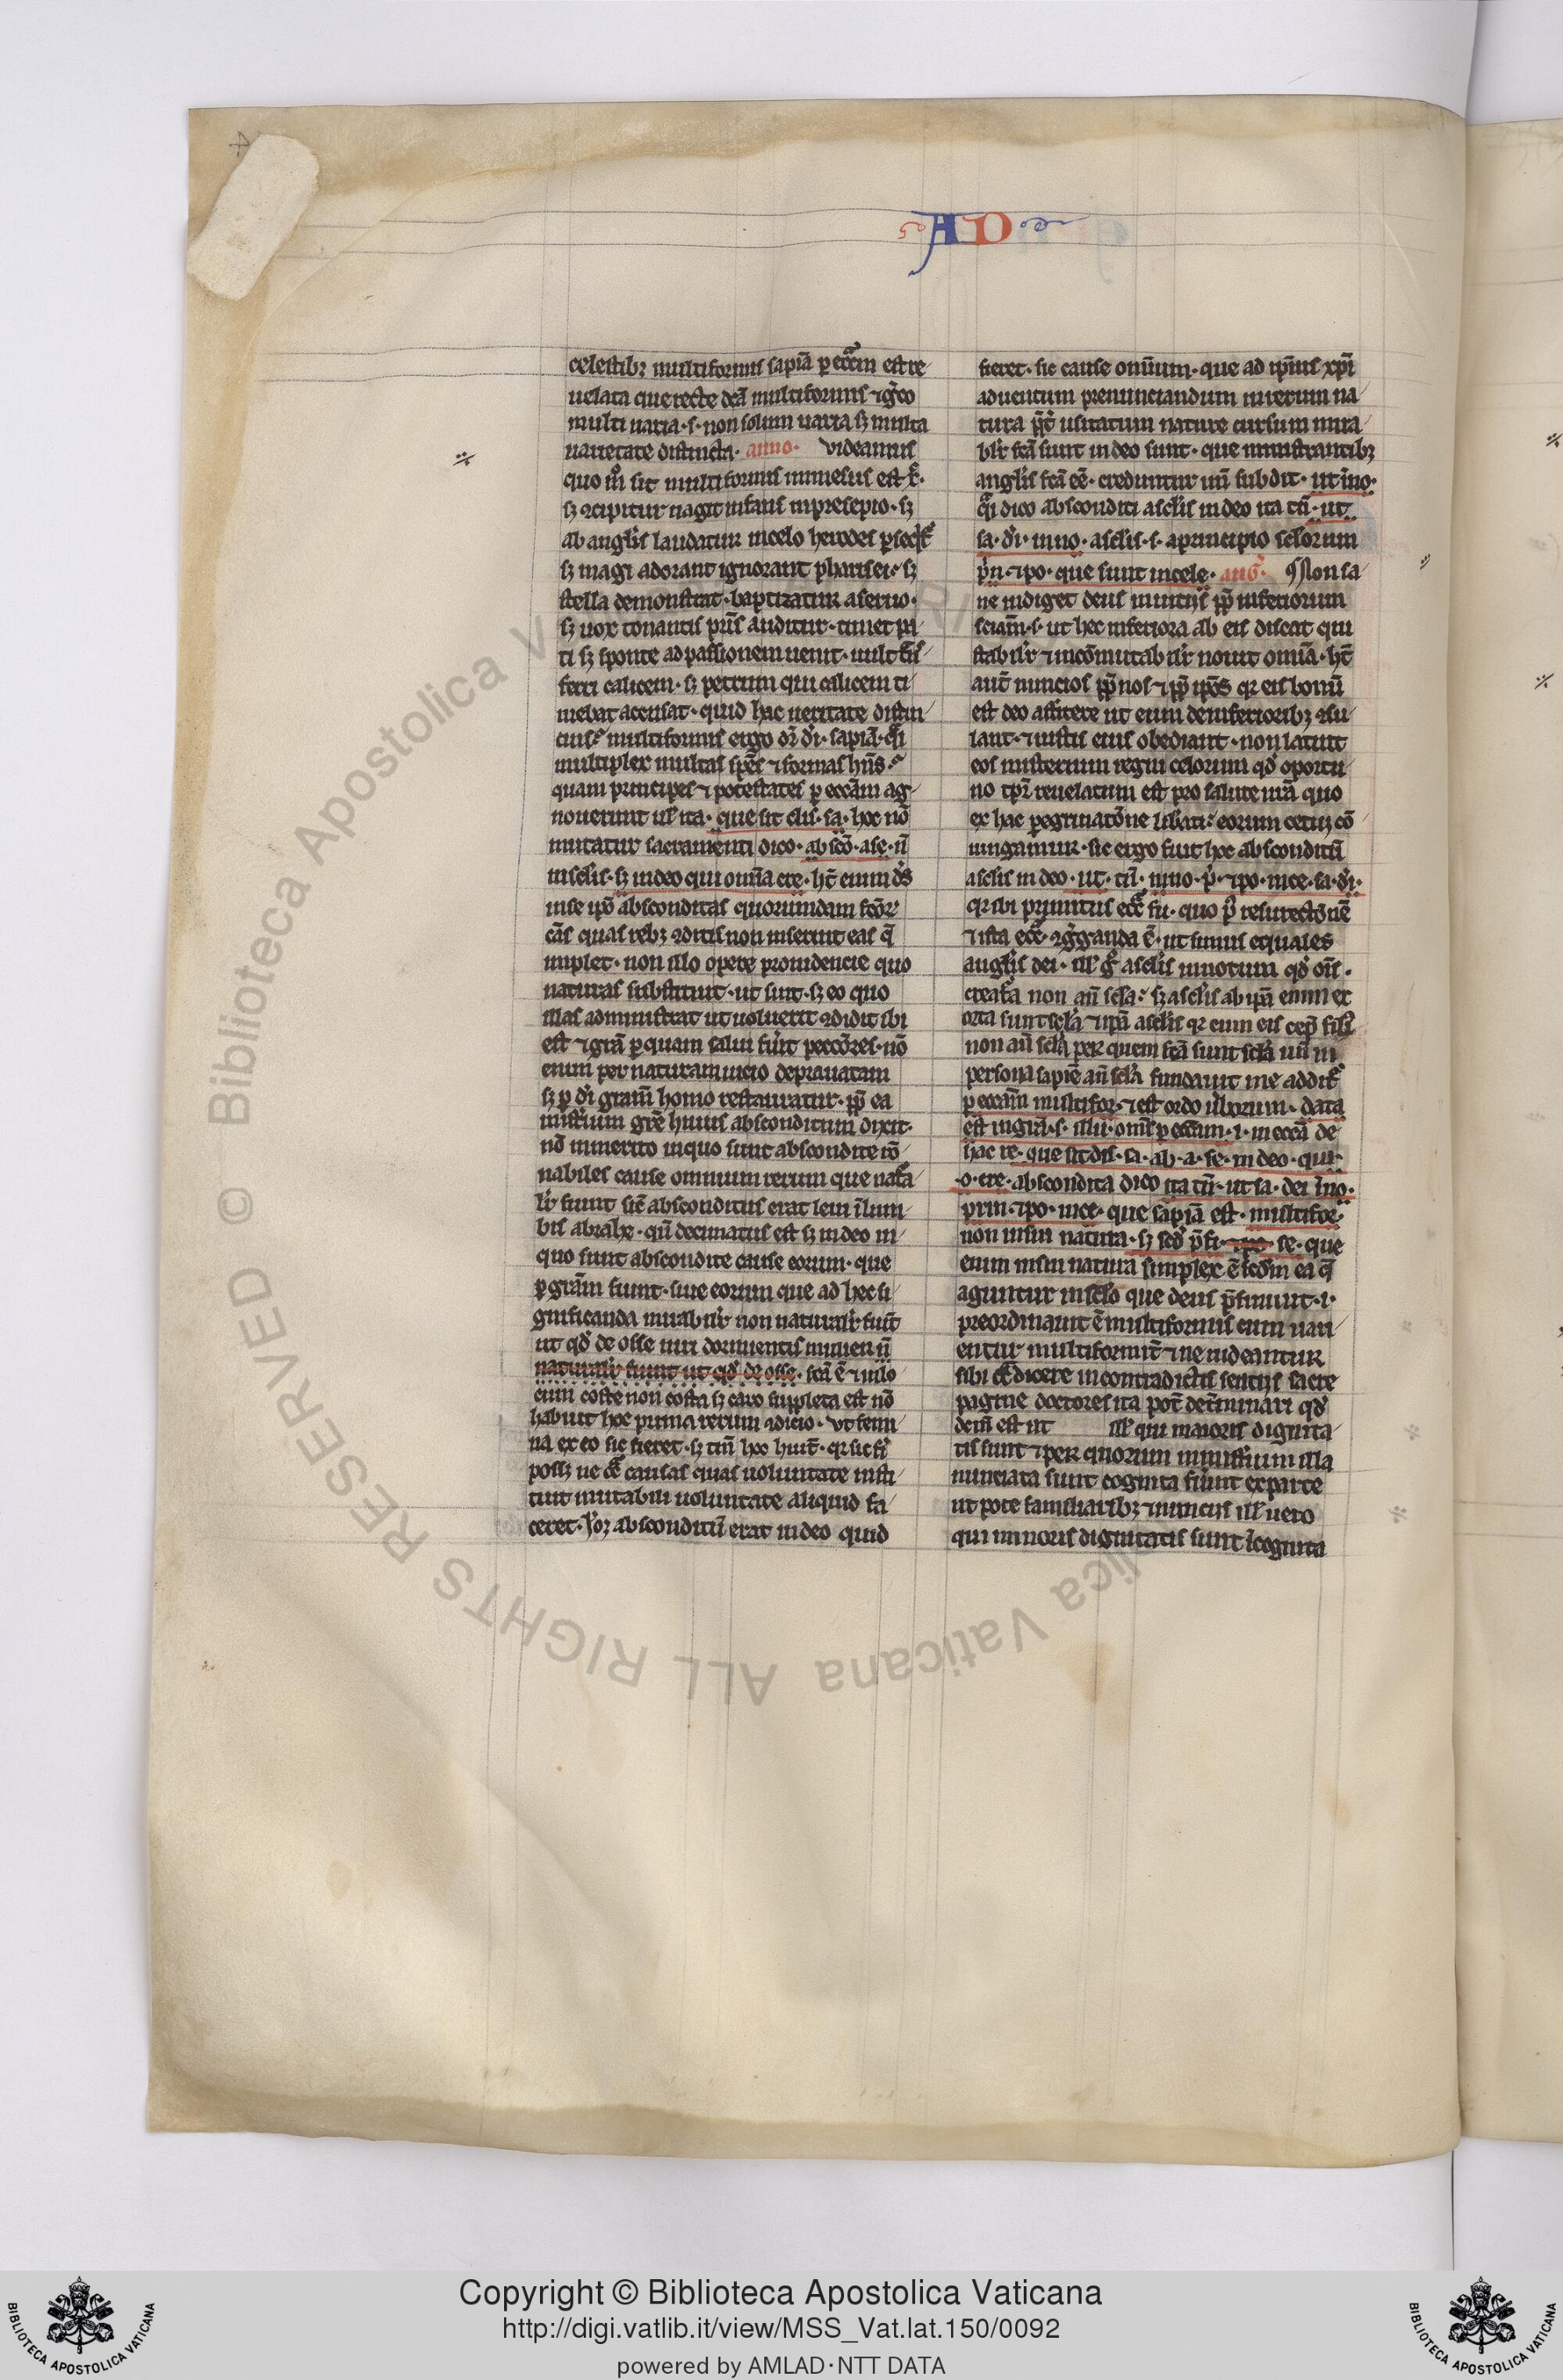 AD
celestibꝫ multiformis sapīa ꝑ ecc̄am est re
uelata que recte dc̄a multiformis ⁊ gͥco
multi uaria·s· non solum uaria sꝫ multa
uarietate distincta· Videamus
quo mͦ sit multiformis
sꝫ ꝯcipitur uagit infans in presepio· sꝫ
ab angl̓is laudatur in celo herodes
sꝫ magi adorant ignorant pharisei· sꝫ
stella demonstrat· baptizatur a seruo·
sꝫ uox tonantis pr̄is auditur· timet pa
ti sꝫ sponte ad passionem uenit· uult
ferri calicem· sꝫ petrum qui calicem ti
mebat accusat· quid hac ueritate distin
cius· multiformis ergo dr̄ dī· sapīa·
multiplex multas spēs ⁊ formas hn̄s·
quam principes ⁊ potestates ꝑ ecc̄am ag
nouerunt ul̓ ita· que sit ·sa· hoc nō
mutatur sacramenti dico· absco· a se·
in sclis· sꝫ in deo qui omīa cre· ht̄ enim ds̄
in se ip̄o absconditas quorumdam
cās quas rebꝫ ꝯditis non inseruit eas q̄
implet· non illo opere prouidencie quo
naturas substituit· ut sint· sꝫ eo quo
illas administrat ut uoluerit ꝯdidit ibi
est ⁊ gr̄a ꝑ quam salui fiūt pecc̄ores· nō
enim per naturam uicio deprauatam
sꝫ ꝑ dī gram̄ homo restauratur· pp̄ ea
misterium gr̄e huius absconditum dixit·
nō inmerito in quo sunt abscondite
nabiles cause omnium rerum que
fiunt sic̄ absconditus erat leui ī lum
bis abrahe· qn̄ decimatus est sꝫ in deo in
quo sunt abscondite cause eorum· que
ꝑ gram̄ fiunt· siue eorum que ad hec si
gnificanda mirabilr̄ non naturalr̄ fiūt
ut qd̓ de osse uiri dormientis mulier
naturalr̄ fiunt ut qd̓ de osse· fc̄a ē ⁊ in lo
cum coste non costa sꝫ caro suppleta est nō
habuit hoc prima rerum ꝯdicio· ut femi
na ex eo sic fieret· sꝫ tm̄ hoc huit̄· qr̄ sic
possꝫ ne causas quas uoluntate insti
tuit mutabili uoluntate aliquid fa
ceret· absconditū erat in deo quid
fieret· sic cause omnium· que ad ip̄ius xp̄i
aduentum prenunciandum mierum na
tura usitatum nature cursum mira
bilr̄ fc̄a sunt in deo sunt· que ministrantibꝫ
anglis fc̄a eē· creduntur un̄ subdit· ut ino·
dico absconditi a sclis in deo ita tn̄· ut
sa· dī· inno· a sclis·s· a principio sclorum
prin· ⁊ po· que sunt in cele· aug· Non sa
ne indiget deus nuntiis pp̄ inferiorum
sciam̄·s· ut hec inferiora ab eis discat qui
stabilr̄ ⁊ incōmutabilr̄ nouit omīa· ht̄
aut̄ nuncios pp̄ nos ⁊ pp̄ ip̄os qr̄ eis bonū
est deo assistere ut eum de inferioribꝫ ꝯsu
lant· ⁊ iustis eius obediant· non latuit
eos misterium regni celorum qd̓ oportu
no tp̄r reuelatum est pro salute nr̄a quo
ex hac ꝑegrinatōne libati· eorum cetui cō
iungamur· sic ergo fuit hoc absconditū
a sclis in deo· ut· tn̄· inno· p̄· ⁊ po· in ce· sa· dī·
qr̄ ibi primitus fu· quo p̄ resurectōnē
⁊ ista ecc̄· ꝯgͥganda ē· ut simus equales
anglis dei· gͦ a sclis innotuit qd̓
non an̄ scla· sꝫ a sclis ab ip̄a enim ex
orta sunt scla ⁊ ip̄a a sclis qr̄ cum eis
non an̄ scla per quem fc̄a sunt scla un̄ in
persona sapiē an̄ scla fundauit me
ꝑ ecc̄am multifor· ⁊ est ordo uborum· data
est in gram̄·s· illu· ·i· in ecc̄a de
hac re· que sit dis· sa· ab· a· se· in deo· qui
·o· cre· abscondita dico ita tn̄· ut sa· dei ino·
prin ⁊ po· in ce· que sapīa est· multifor·
non in sui natura· sꝫ sed p̄fi· se· que
enim in sui natura simplex ē scdm ea q̄
aguntur in sclo que deus p̄finiuit·i·
preordinauit ē multiformis cum uari
entur multiformit̄ ⁊ ne uideantur
sibi dicere in contradictis sentenciis sacre
pagine doctores ita pot̄ det̄minari qd̓
dem̄ est ut ill̓ qui maioris dignita
tis sunt ⁊ per quorum ministerium illa
nunciata sunt cognita fuūt ex parte
ut pote familiaribꝫ ⁊ nunciis ill̓ uero
qui minoris dignitatis sunt īcognita
Copyright © Biblioteca Apostolica Vaticana
http://digi.vatlib.it/view/MSS_Vat.lat.150/0092
powered by AMLAD·NTT DATA
© Biblioteca Apostolica Vaticana ALL RIGHTS RESERVED
BIBLIOTECA APOSTOLICA VATICANA
BIBLIOTECA APOSTOLICA VATICANA